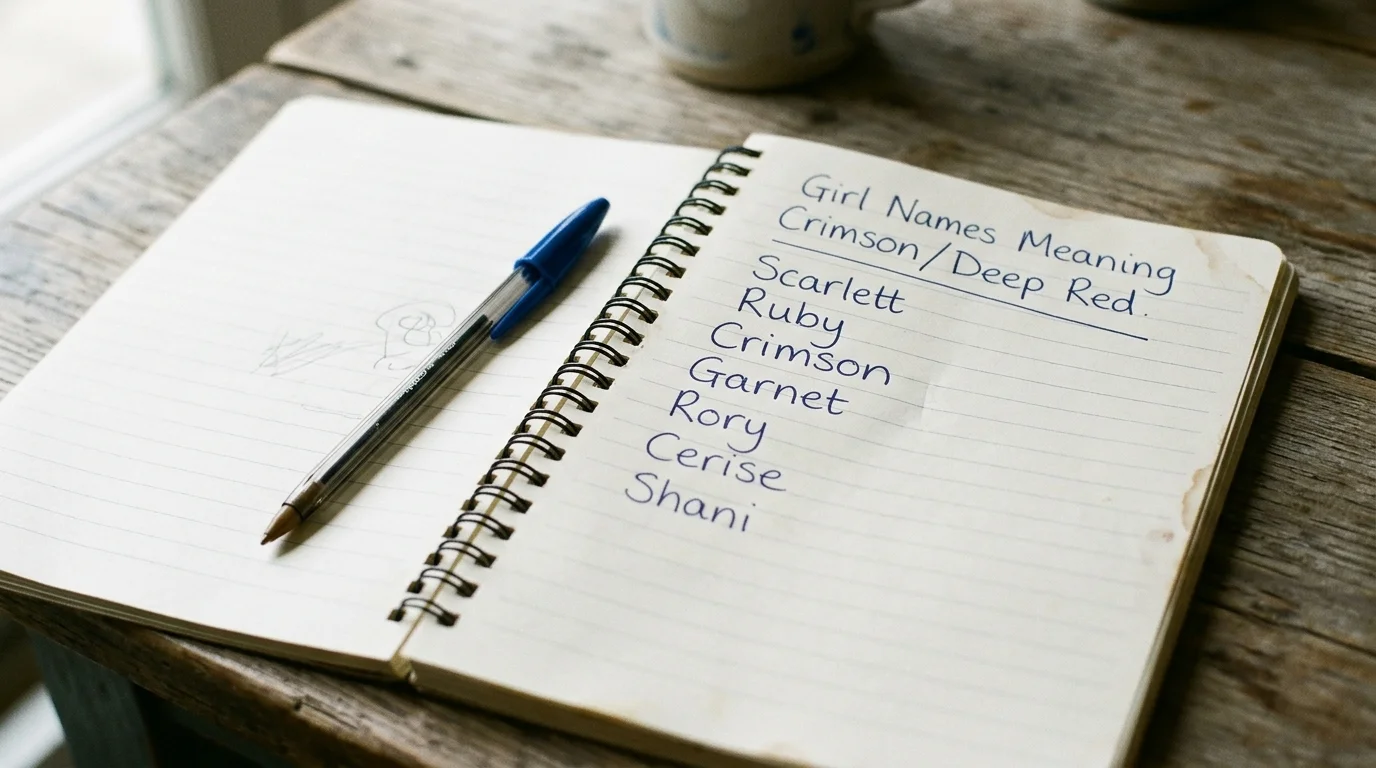 Girl Names Meaning
Crimson/Deep Red.
Scarlett
Ruby
Crimson
Garnet
Rory
Cerise
Shani